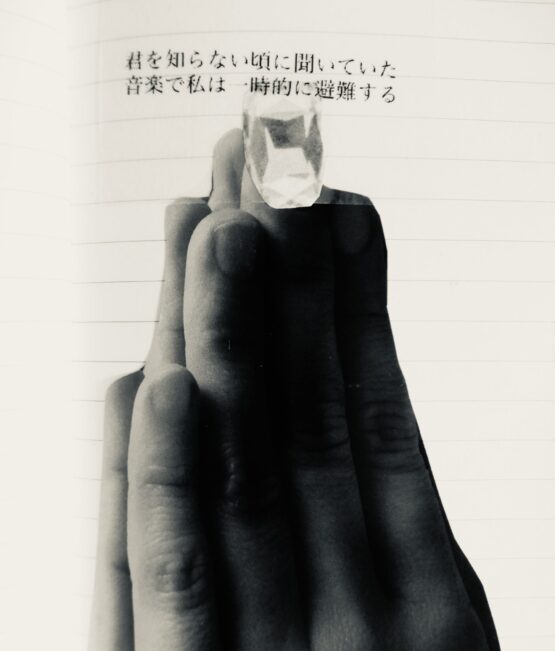 君を知らない頃に聞いていた
音楽で私は一時的に避難する